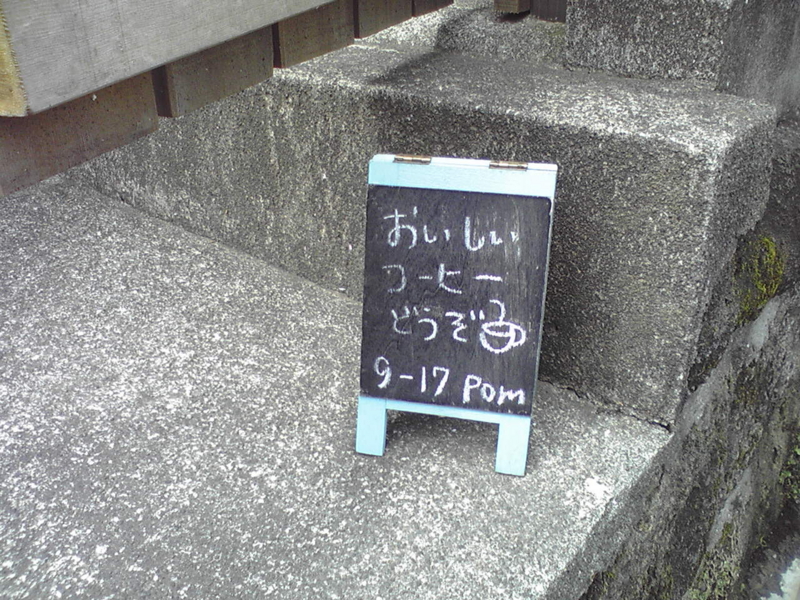 おいしい
コーヒー
どうぞ
9-17 pom